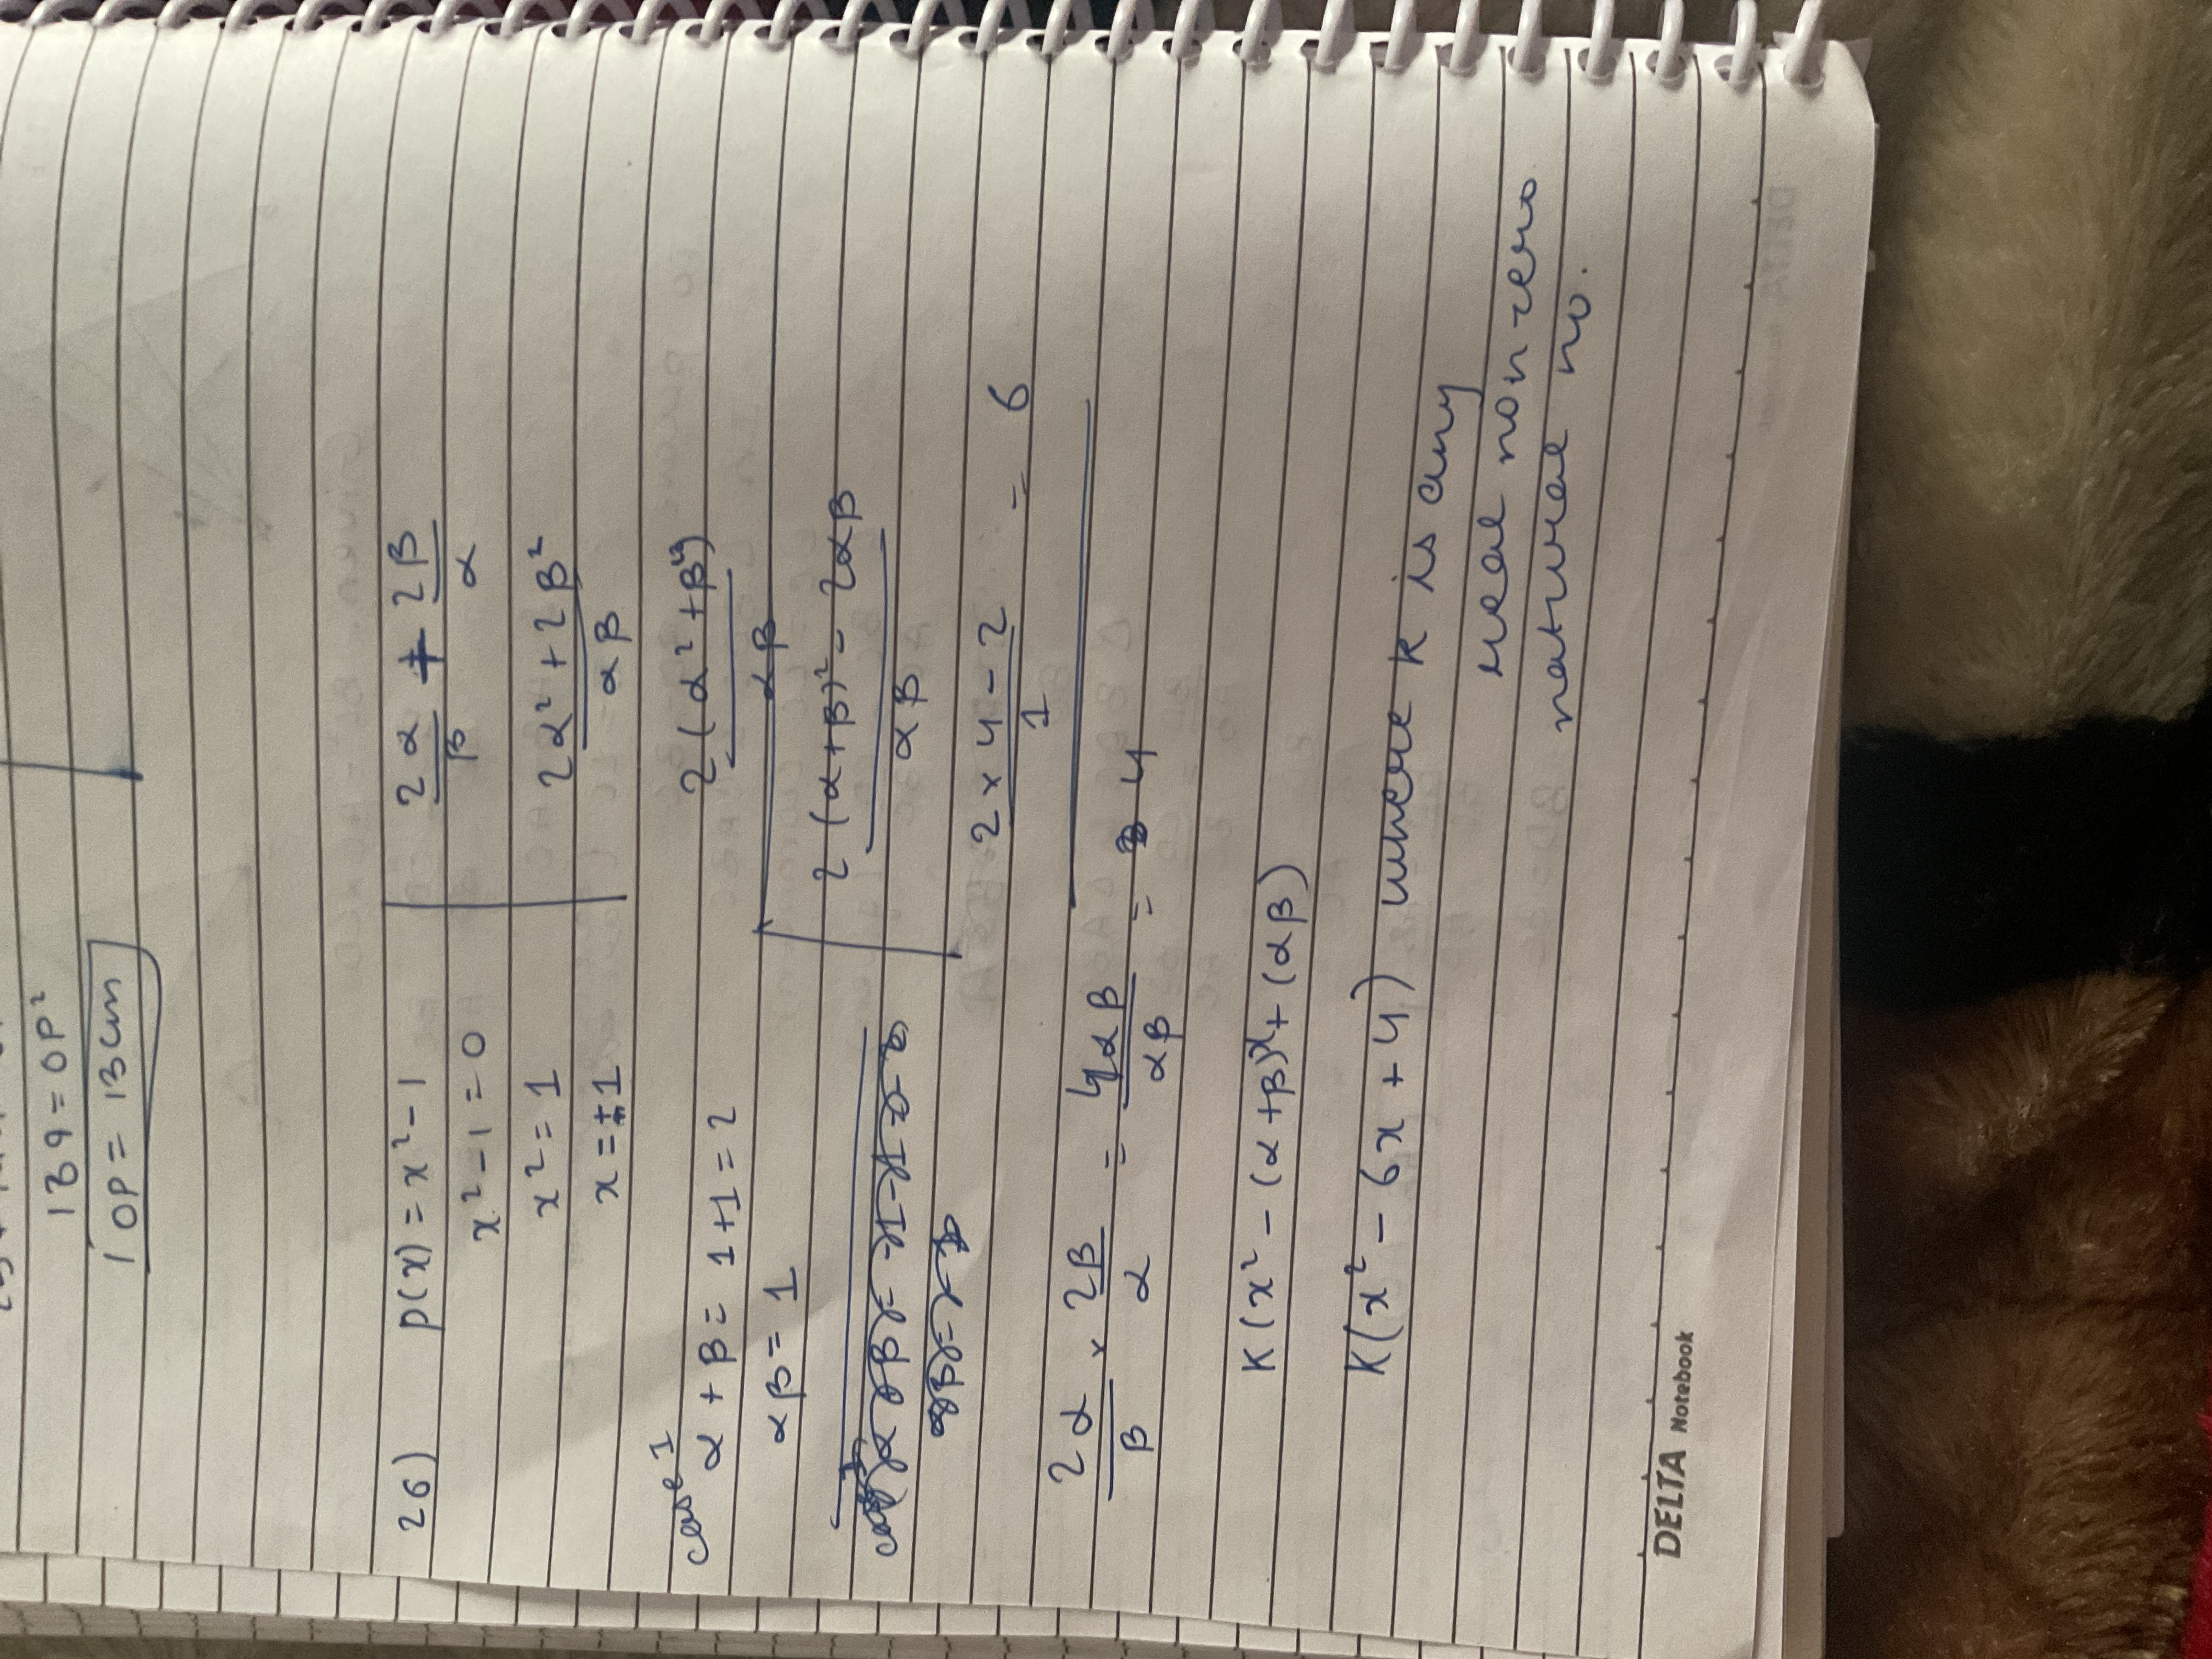 139 = OP²
OP = 13cm
26) p(x) = x² - 1
x² - 1 = 0
x² = 1
x = ±1
2α/β + 2β/α
2α² + 2β²/αβ
case 1
α + β = 1 + 1 = 2
αβ = 1
2(α² + β²)/αβ
2(α+β)² - 2αβ/αβ
2 × 4 - 2/1 = 6
2α/β × 2β/α = 4αβ/αβ = 4
K(x² - (α+β)x + (αβ)
K(x² - 6x + 4) where k is any
real non zero
natural no.
DELTA Notebook